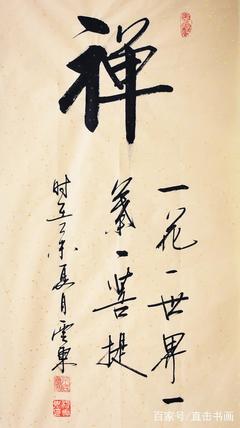 禅
一花一世界一
葉一菩提
时在乙未夏月雲東
百家号/直击书画